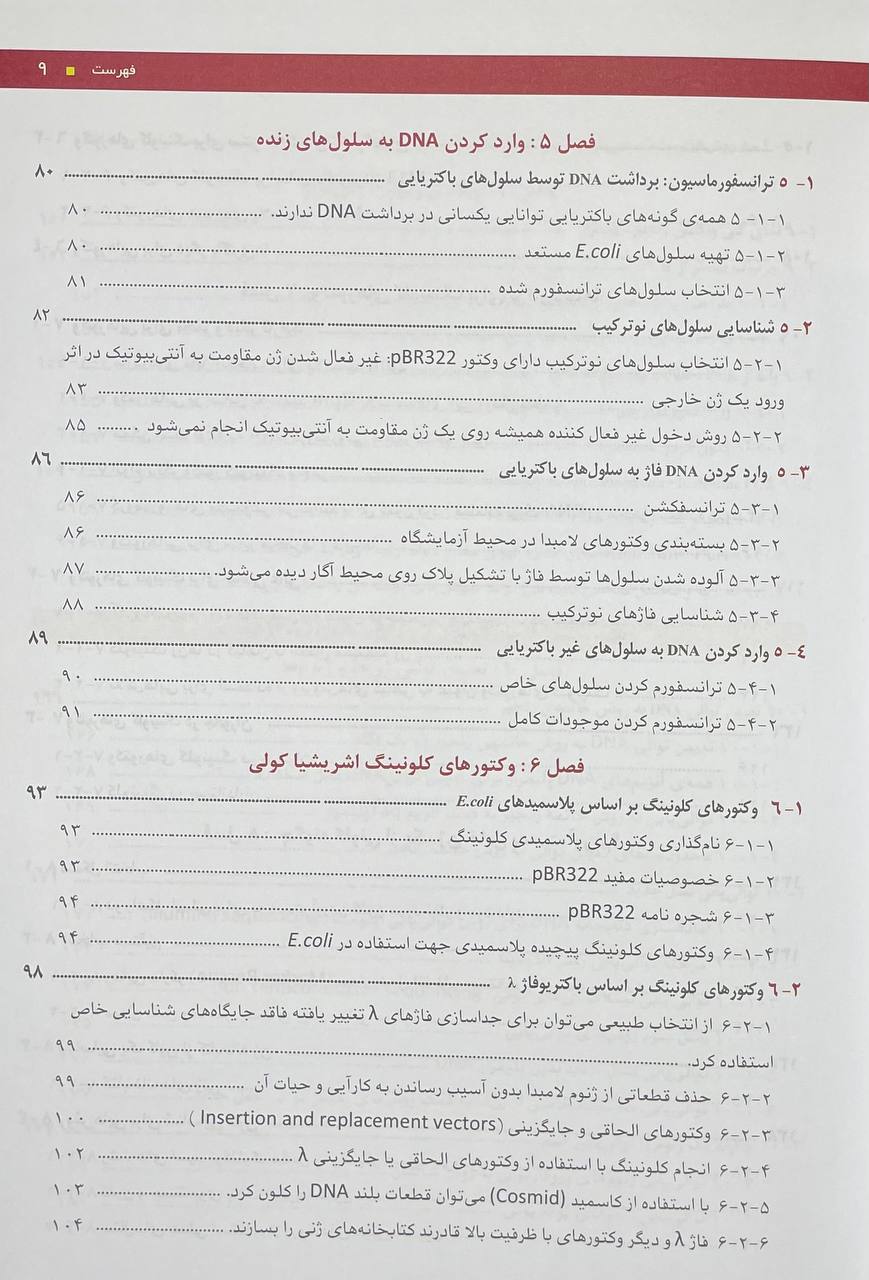 فهرست ■ ۹
فصل ۵: وارد کردن DNA به سلول‌های زنده
۱- ۵ ترانسفورماسیون: برداشت DNA توسط سلول‌های باکتریایی ........ ۸۰
۱-۱- ۵ همه‌ی گونه‌های باکتریایی توانایی یکسانی در برداشت DNA ندارند. ........ ۸۰
۵-۱-۲ تهیه سلول‌های E.coli مستعد ........ ۸۰
۵-۱-۳ انتخاب سلول‌های ترانسفورم شده ........ ۸۱
۵-۲ شناسایی سلول‌های نوترکیب ........ ۸۲
۵-۲-۱ انتخاب سلول‌های نوترکیب دارای وکتور pBR322: غیر فعال شدن ژن مقاومت به آنتی‌بیوتیک در اثر
ورود یک ژن خارجی ........ ۸۳
۵-۲-۲ روش دخول غیر فعال کننده همیشه روی یک ژن مقاومت به آنتی‌بیوتیک انجام نمی‌شود. ........ ۸۵
۵-۳ وارد کردن DNA فاژ به سلول‌های باکتریایی ........ ۸۶
۵-۳-۱ ترانسفکشن ........ ۸۶
۵-۳-۲ بسته‌بندی وکتورهای لامبدا در محیط آزمایشگاه ........ ۸۶
۵-۳-۳ آلوده شدن سلول‌ها توسط فاژ با تشکیل پلاک روی محیط آگار دیده می‌شود. ........ ۸۷
۵-۳-۴ شناسایی فاژهای نوترکیب ........ ۸۸
۵-۴ وارد کردن DNA به سلول‌های غیر باکتریایی ........ ۸۹
۵-۴-۱ ترانسفورم کردن سلول‌های خاص ........ ۹۰
۵-۴-۲ ترانسفورم کردن موجودات کامل ........ ۹۱
فصل ۶: وکتورهای کلونینگ اشریشیا کولی
۶-۱ وکتورهای کلونینگ بر اساس پلاسمیدهای E.coli ........ ۹۳
۶-۱-۱ نام‌گذاری وکتورهای پلاسمیدی کلونینگ ........ ۹۳
۶-۱-۲ خصوصیات مفید pBR322 ........ ۹۳
۶-۱-۳ شجره نامه pBR322 ........ ۹۴
۶-۱-۴ وکتورهای کلونینگ پیچیده پلاسمیدی جهت استفاده در E.coli ........ ۹۴
۶-۲ وکتورهای کلونینگ بر اساس باکتریوفاژ λ ........ ۹۸
۶-۲-۱ از انتخاب طبیعی می‌توان برای جداسازی فاژهای λ تغییر یافته فاقد جایگاه‌های شناسایی خاص
استفاده کرد. ........ ۹۹
۶-۲-۲ حذف قطعاتی از ژنوم لامبدا بدون آسیب رساندن به کارآیی و حیات آن ........ ۹۹
۶-۲-۳ وکتورهای الحاقی و جایگزینی (Insertion and replacement vectors) ........ ۱۰۰
۶-۲-۴ انجام کلونینگ با استفاده از وکتورهای الحاقی یا جایگزینی λ ........ ۱۰۲
۶-۲-۵ با استفاده از کاسمید (Cosmid) می‌توان قطعات بلند DNA را کلون کرد. ........ ۱۰۳
۶-۲-۶ فاژ λ و دیگر وکتورهای با ظرفیت بالا قادرند کتابخانه‌های ژنی را بسازند. ........ ۱۰۴